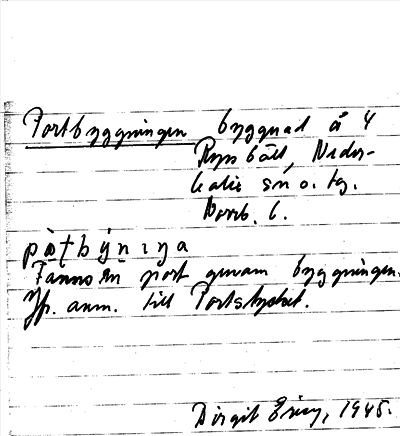 Portbyggningen byggnad å 4
Rysbält, Neder-
kalix sn o. tg.
Norrb. l.
Fanns en port genom byggningen.
Jfr. anm. till Portstycket.
Birgit 1945.